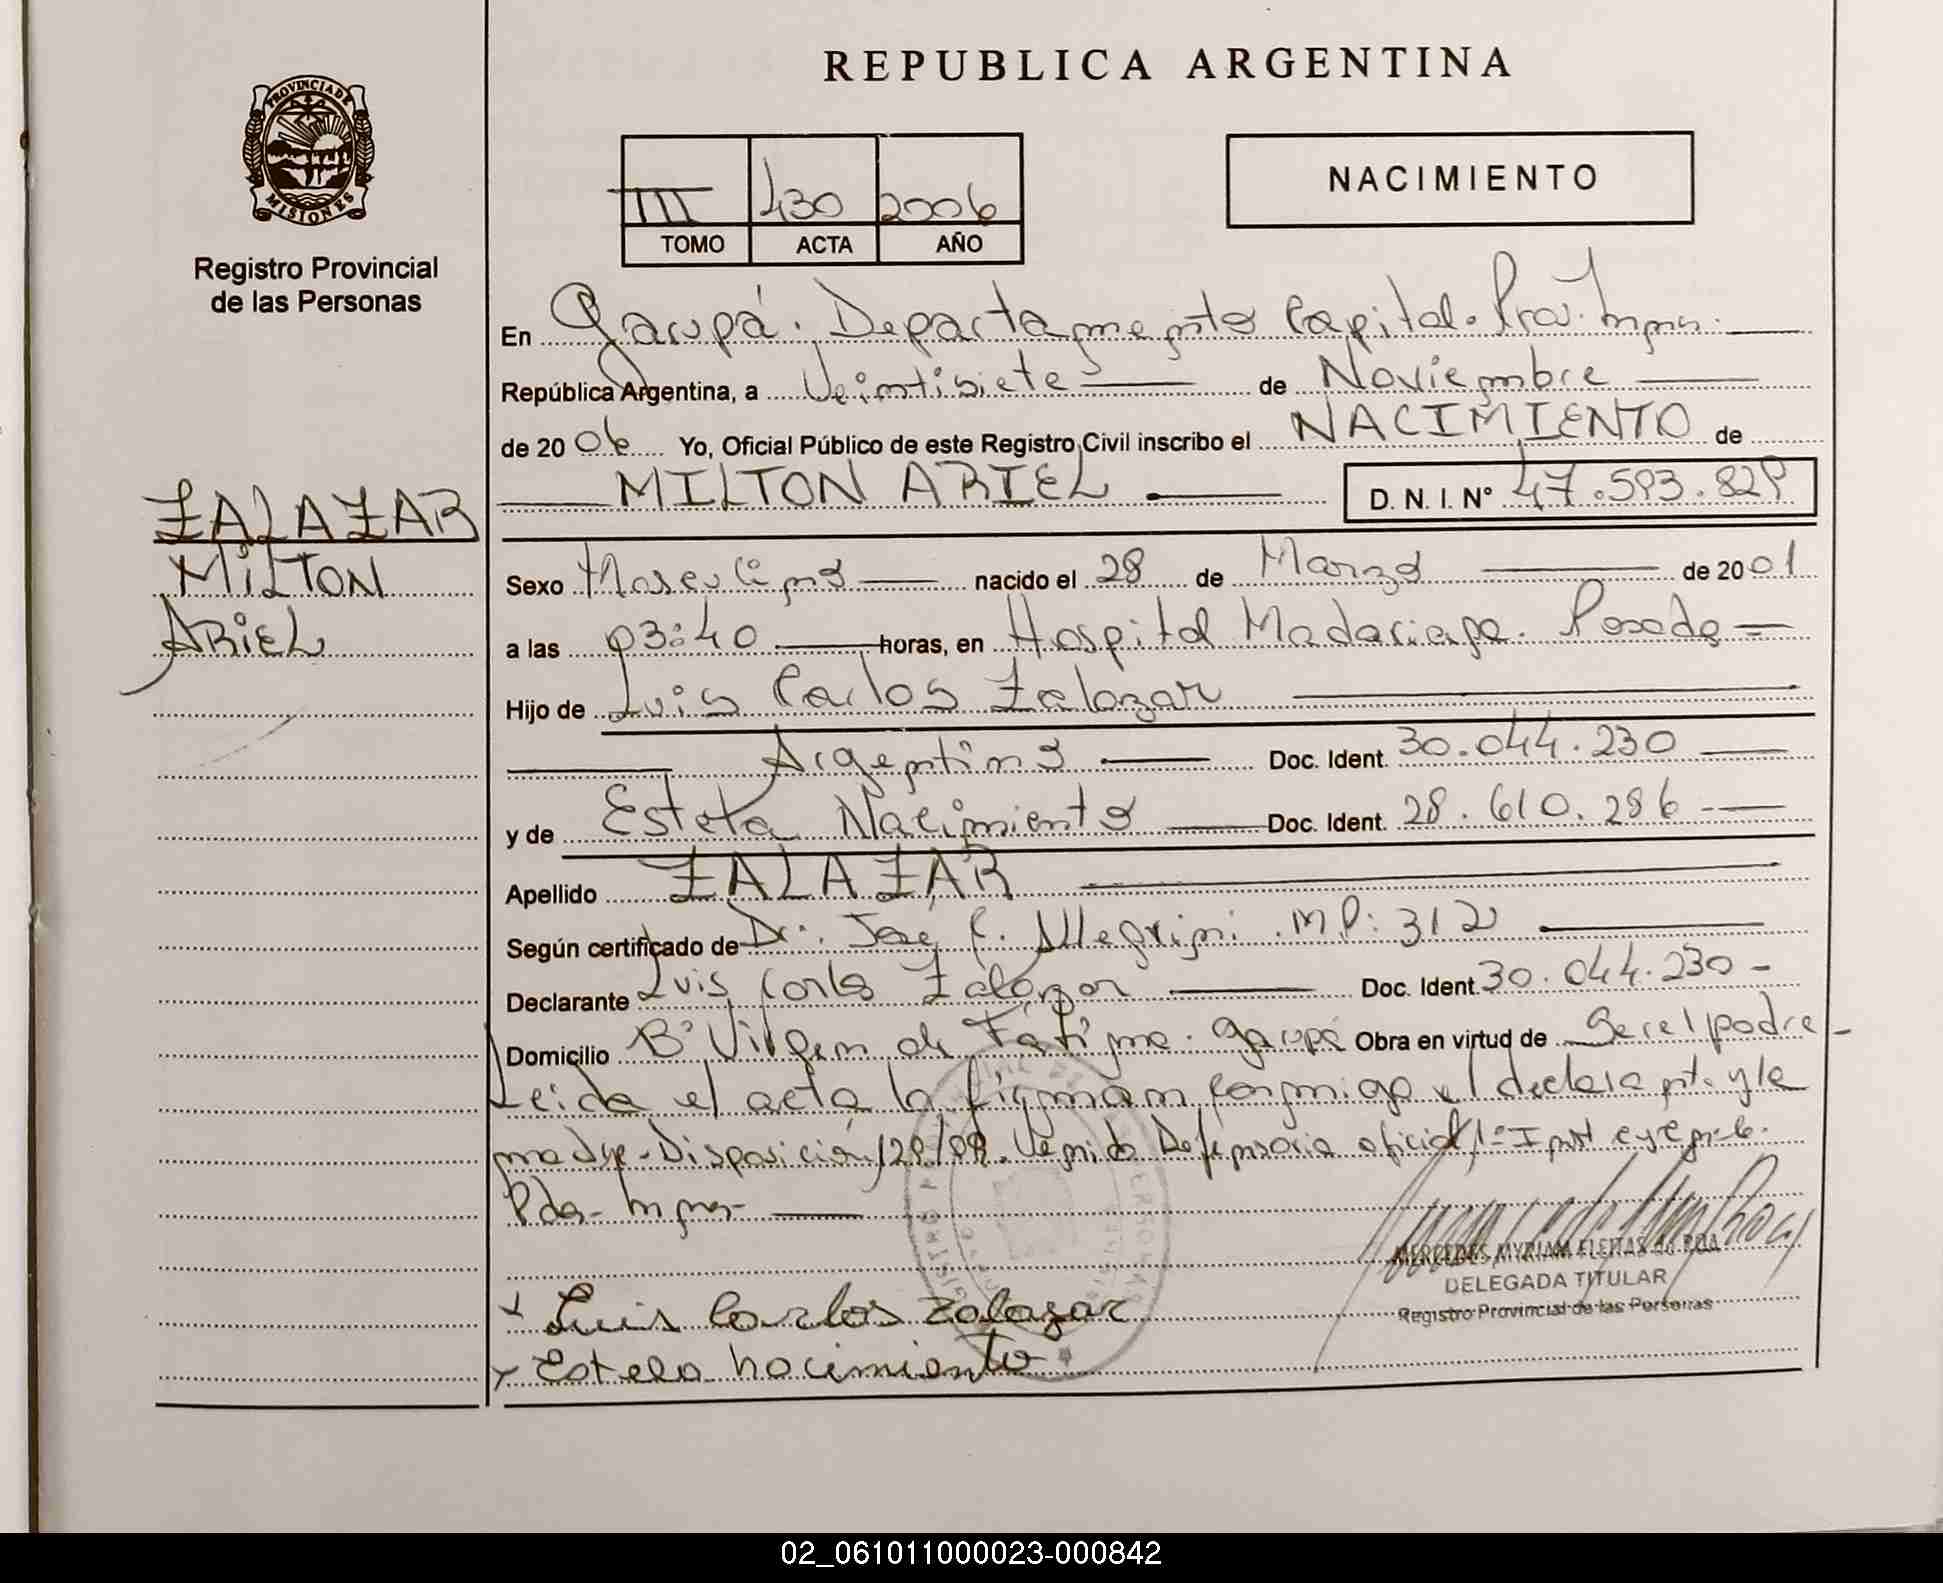 REPUBLICA ARGENTINA
PROVINCIA DE
MISIONES
Registro Provincial
de las Personas
III 430 2006
TOMO ACTA AÑO
NACIMIENTO
En Garupá. Departamento Capital. Prov. Mnes.
República Argentina, a Veintisiete de Noviembre
de 2006 Yo, Oficial Público de este Registro Civil inscribo el NACIMIENTO de
MILTON ARIEL D. N. I. N° 47.593.829
ZALAZAR
MILTON
ARIEL
Sexo Masculino nacido el 28 de Marzo de 2001
a las 03:40 horas, en Hospital Madariaga. Posadas
Hijo de Luis Carlos Zalazar
Argentino Doc. Ident. 30.044.230
y de Estela Nacimiento Doc. Ident. 28.610.286
Apellido ZALAZAR
Según certificado de Dr. José C. Allegrini. M.P: 312
Declarante Luis Carlos Zalazar Doc. Ident. 30.044.230
Domicilio B° Virgen de Fátima. Garupá Obra en virtud de Ser el padre
Leida el acta la firman conmigo el declarante y la
madre. Disposición Defensoria oficial
Pdas. Mnes.
MERCEDES MYRIAM FLEITAS de ROA
DELEGADA TITULAR
Registro Provincial de las Personas
Luis Carlos Zalazar
Estela nacimiento
02_061011000023-000842